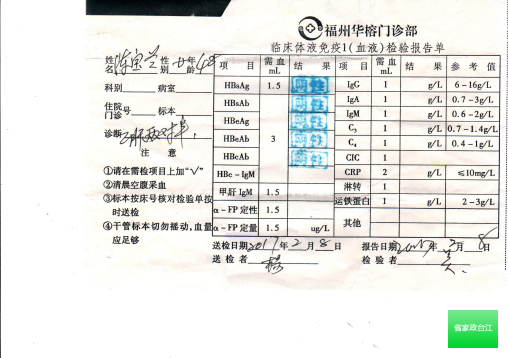 福州华榕门诊部
临床体液免疫1(血液)检验报告单
姓名 性别 女 年龄
科别 病室
住院门诊号 标本
诊断
注 意
①请在需检项目上加"√"
②清晨空腹采血
③标本按床号核对检验单按时送检
④干管标本切勿摇动,血量应足够
项 目 需血mL 结 果 项 目 需血mL 结 果 参 考 值
HBsAg 1.5 阴性 IgG 1 g/L 6-16g/L
HBsAb 3 阴性 IgA 1 g/L 0.7-3g/L
HBeAg 阴性 IgM 1 g/L 0.6-2g/L
HBeAb 阴性 C3 1 g/L 0.7-1.4g/L
HBcAb 阴性 C4 1 g/L 0.4-1g/L
CIC 1
HBc-IgM CRP 2 g/L ≤10mg/L
甲肝 IgM 1.5 淋转 1
α-FP 定性 1.5 运铁蛋白 1 g/L 2-3g/L
α-FP 定量 1.5 ug/L 其他
送检日期 2017年2月8日 报告日期 年2月8日
送 检 者 检 验 者
省家政台江